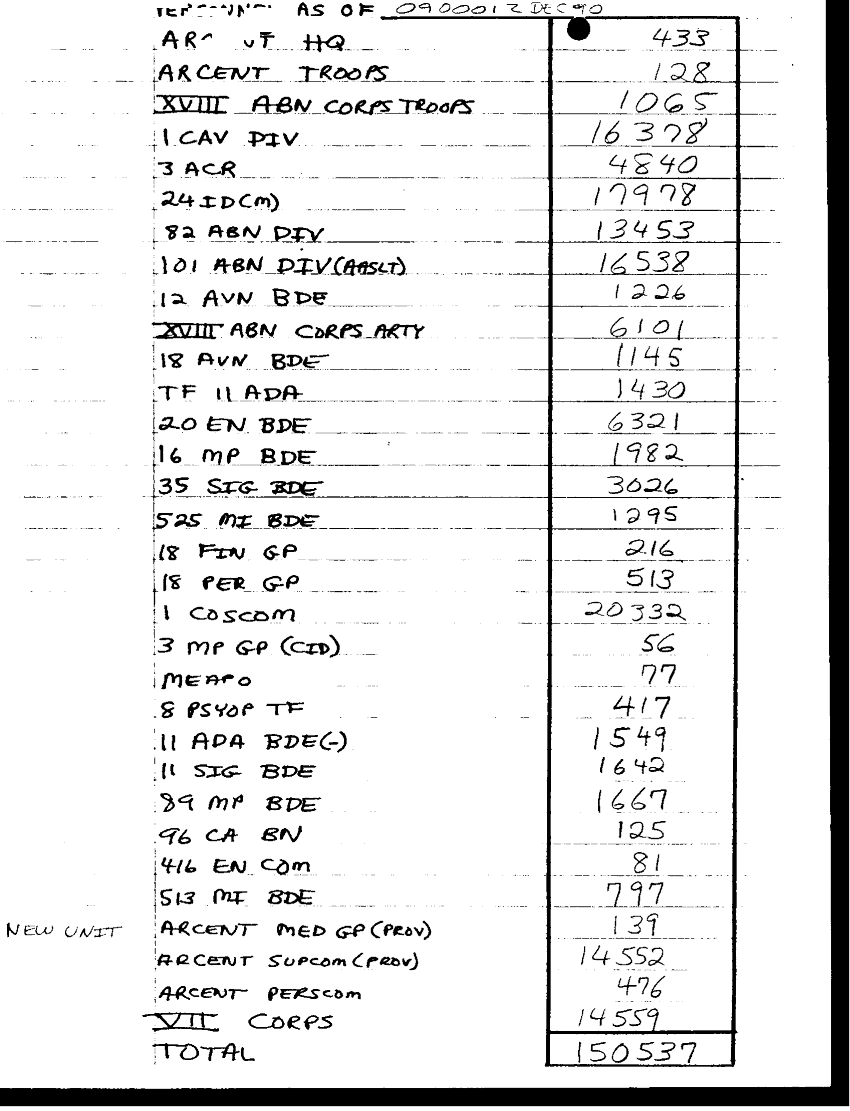 AS OF 090001Z DEC 90
HQ 433
ARCENT TROOPS 128
XVIII ABN CORPS TROOPS 1065
1 CAV DIV 16378
3 ACR 4840
24 ID(M) 17978
82 ABN DIV 13453
101 ABN DIV (AASLT) 16538
12 AVN BDE 1226
XVIII ABN CORPS ARTY 6101
18 AVN BDE 1145
TF 11 ADA 1430
20 EN BDE 6321
16 MP BDE 1982
35 SIG BDE 3026
525 MI BDE 1295
18 FIN GP 216
18 PER GP 513
1 COSCOM 20332
3 MP GP (CID) 56
MEAPO 77
8 PSYOP TF 417
11 ADA BDE(-) 1549
11 SIG BDE 1642
89 MP BDE 1667
96 CA BN 125
416 EN COM 81
513 MI BDE 797
NEW UNIT ARCENT MED GP (PROV) 139
ARCENT SUPCOM (PROV) 14552
ARCENT PERSCOM 476
VII CORPS 14559
TOTAL 150537